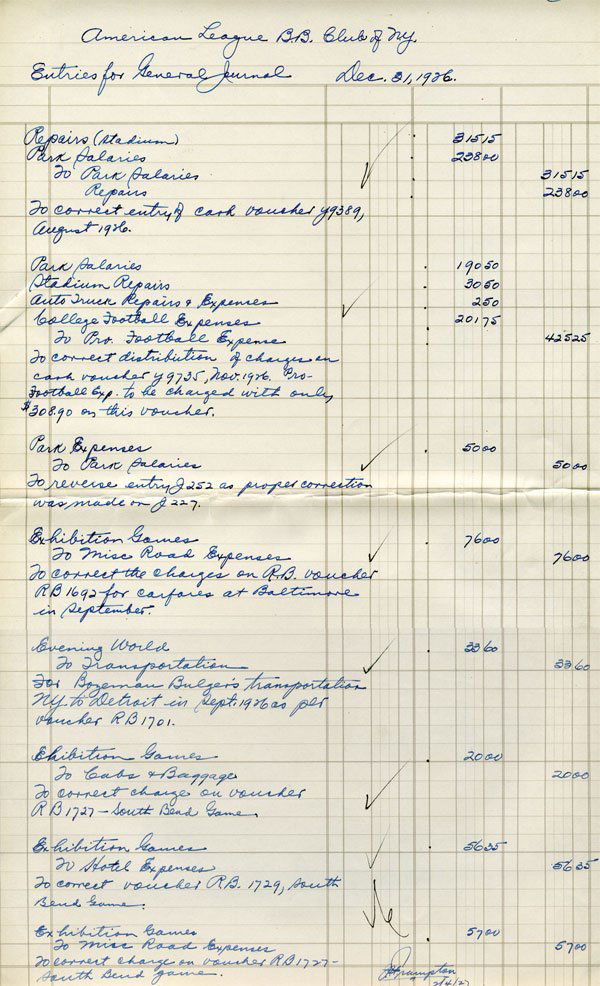 American League B.B. Club of NY.
Entries for General Journal Dec. 31, 1926.
Repairs (Stadium) 315 15
Park Salaries 238 00
To Park Salaries 315 15
Repairs 238 00
To correct entry of cash voucher y9389,
August 1926.
Park Salaries 190 50
Stadium Repairs 30 50
Auto Truck Repairs & Expenses 2 50
College Football Expenses 201 75
To Pro. Football Expense 425 25
To correct distribution of charges on
cash voucher y9735, Nov. 1926. Pro-
Football Exp. to be charged with only
$308.90 on this voucher.
Park Expenses 50 00
To Park Salaries 50 00
To reverse entry J252 as proper correction
was made on J227.
Exhibition Games 76 00
To Misc Road Expenses 76 00
To correct the charges on R.B. voucher
RB1692 for carfares at Baltimore
in September.
Evening World 33 60
To Transportation 33 60
For Bozeman Bulger's transportation
NY to Detroit in Sept. 1926 as per
voucher RB1701.
Ehibition Games 20 00
To Cabs & Baggage 20 00
To correct charge on voucher
RB1727 - South Bend Game.
Exhibition Games 56 35
To Hotel Expenses 56 35
To correct voucher RB. 1729, South
Bend Game.
Exhibition Games 57 00
To Miss Road Expenses 57 00
To correct charge on voucher RB1727-
South Bend game.
2/4/27